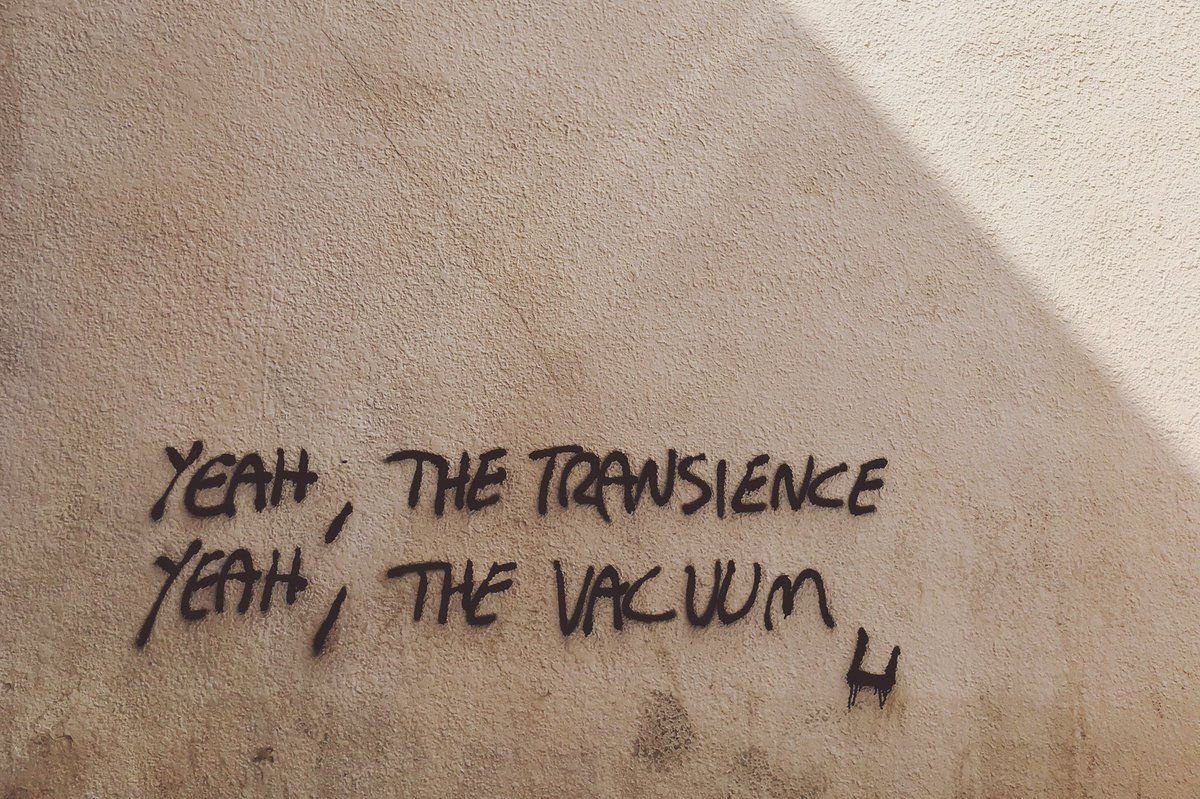 YEAH, THE TRANSIENCE
YEAH, THE VACUUM